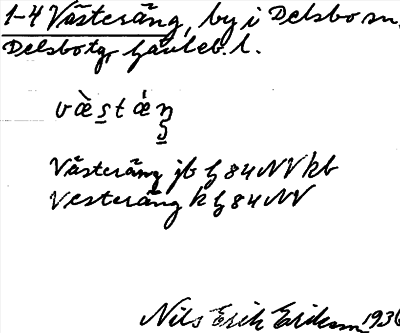 1-4 Västeräng, by i Delsbo sn.
Delsbo tg, Gävleb. l.
västäŋ
Västeräng jb h 84 NV kb
Vesteräng k h 84 NV
Nils Erik Erikson 1936